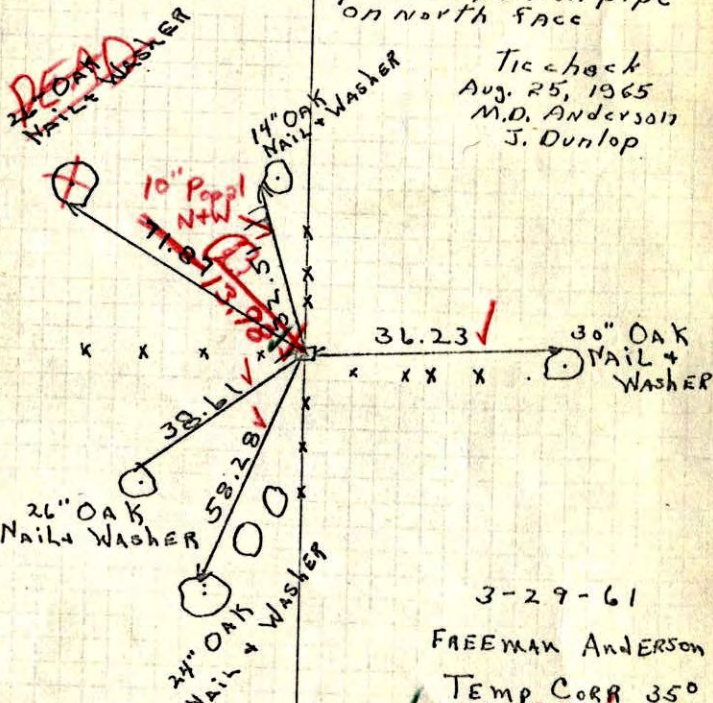 on North FACE
Tie check
Aug. 25, 1965
M.D. Anderson
J. Dunlop
DEAD
26" OAK
NAIL + WASHER
14" OAK
NAIL + WASHER
10" Popal
N+W
71.87
13.98
36.23
30" OAK
NAIL +
WASHER
38.61
58.28
26" OAK
NAIL + WASHER
24" OAK
NAIL + WASHER
3-29-61
FREEMAN ANDERSON
TEMP CORR 35°